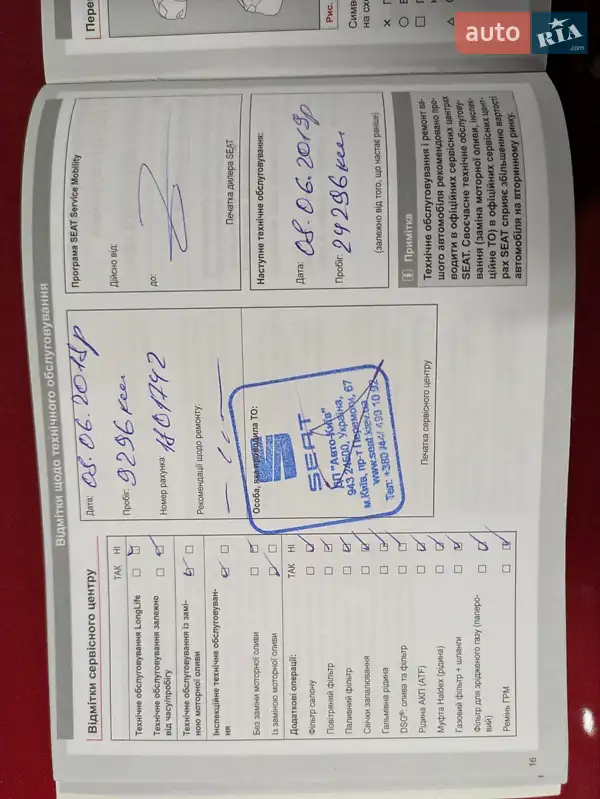 Відмітки щодо технічного обслуговування
Відмітки сервісного центру
ТАК НІ
Технічне обслуговування LongLife
Технічне обслуговування залежно
від часу/пробігу
Технічне обслуговування із замі-
ною моторної оливи
Інспекційне технічне обслуговуван-
ня
Без заміни моторної оливи
Із заміною моторної оливи
Додаткові операції:
ТАК НІ
Фільтр салону
Повітряний фільтр
Паливний фільтр
Свічки запалювання
Гальмівна рідина
DSG®: олива та фільтр
Рідина АКП (ATF)
Муфта Haldex (рідина)
Газовий фільтр + шланги
Фільтр для зрідженого газу (паперо-
вий)
Ремінь ГРМ
16
Дата: 08.06.2018р
Пробіг: 9296 км
Номер рахунка:
Рекомендації щодо ремонту:
Особа, яка проводила ТО:
SEAT
ДП "Авто-Київ"
Україна,
м.Київ, пр-т Перемоги, 67
www.seat.kiev.ua
Печатка сервісного центру
Програма SEAT Service Mobility
Дійсно від:
до:
Печатка дилера SEAT
Наступне технічне обслуговування:
Дата: 08.06.2019р
Пробіг: 24296 км
(залежно від того, що настає раніше)
Примітка
Технічне обслуговування і ремонт ва-
шого автомобіля рекомендовано про-
водити в офіційних сервісних центрах
SEAT. Своєчасне технічне обслугову-
вання (заміна моторної оливи, інспек-
ційне ТО) в офіційних сервісних цент-
рах SEAT сприяє збільшенню вартості
автомобіля на вторинному ринку.
Рис.
auto RIA
.com